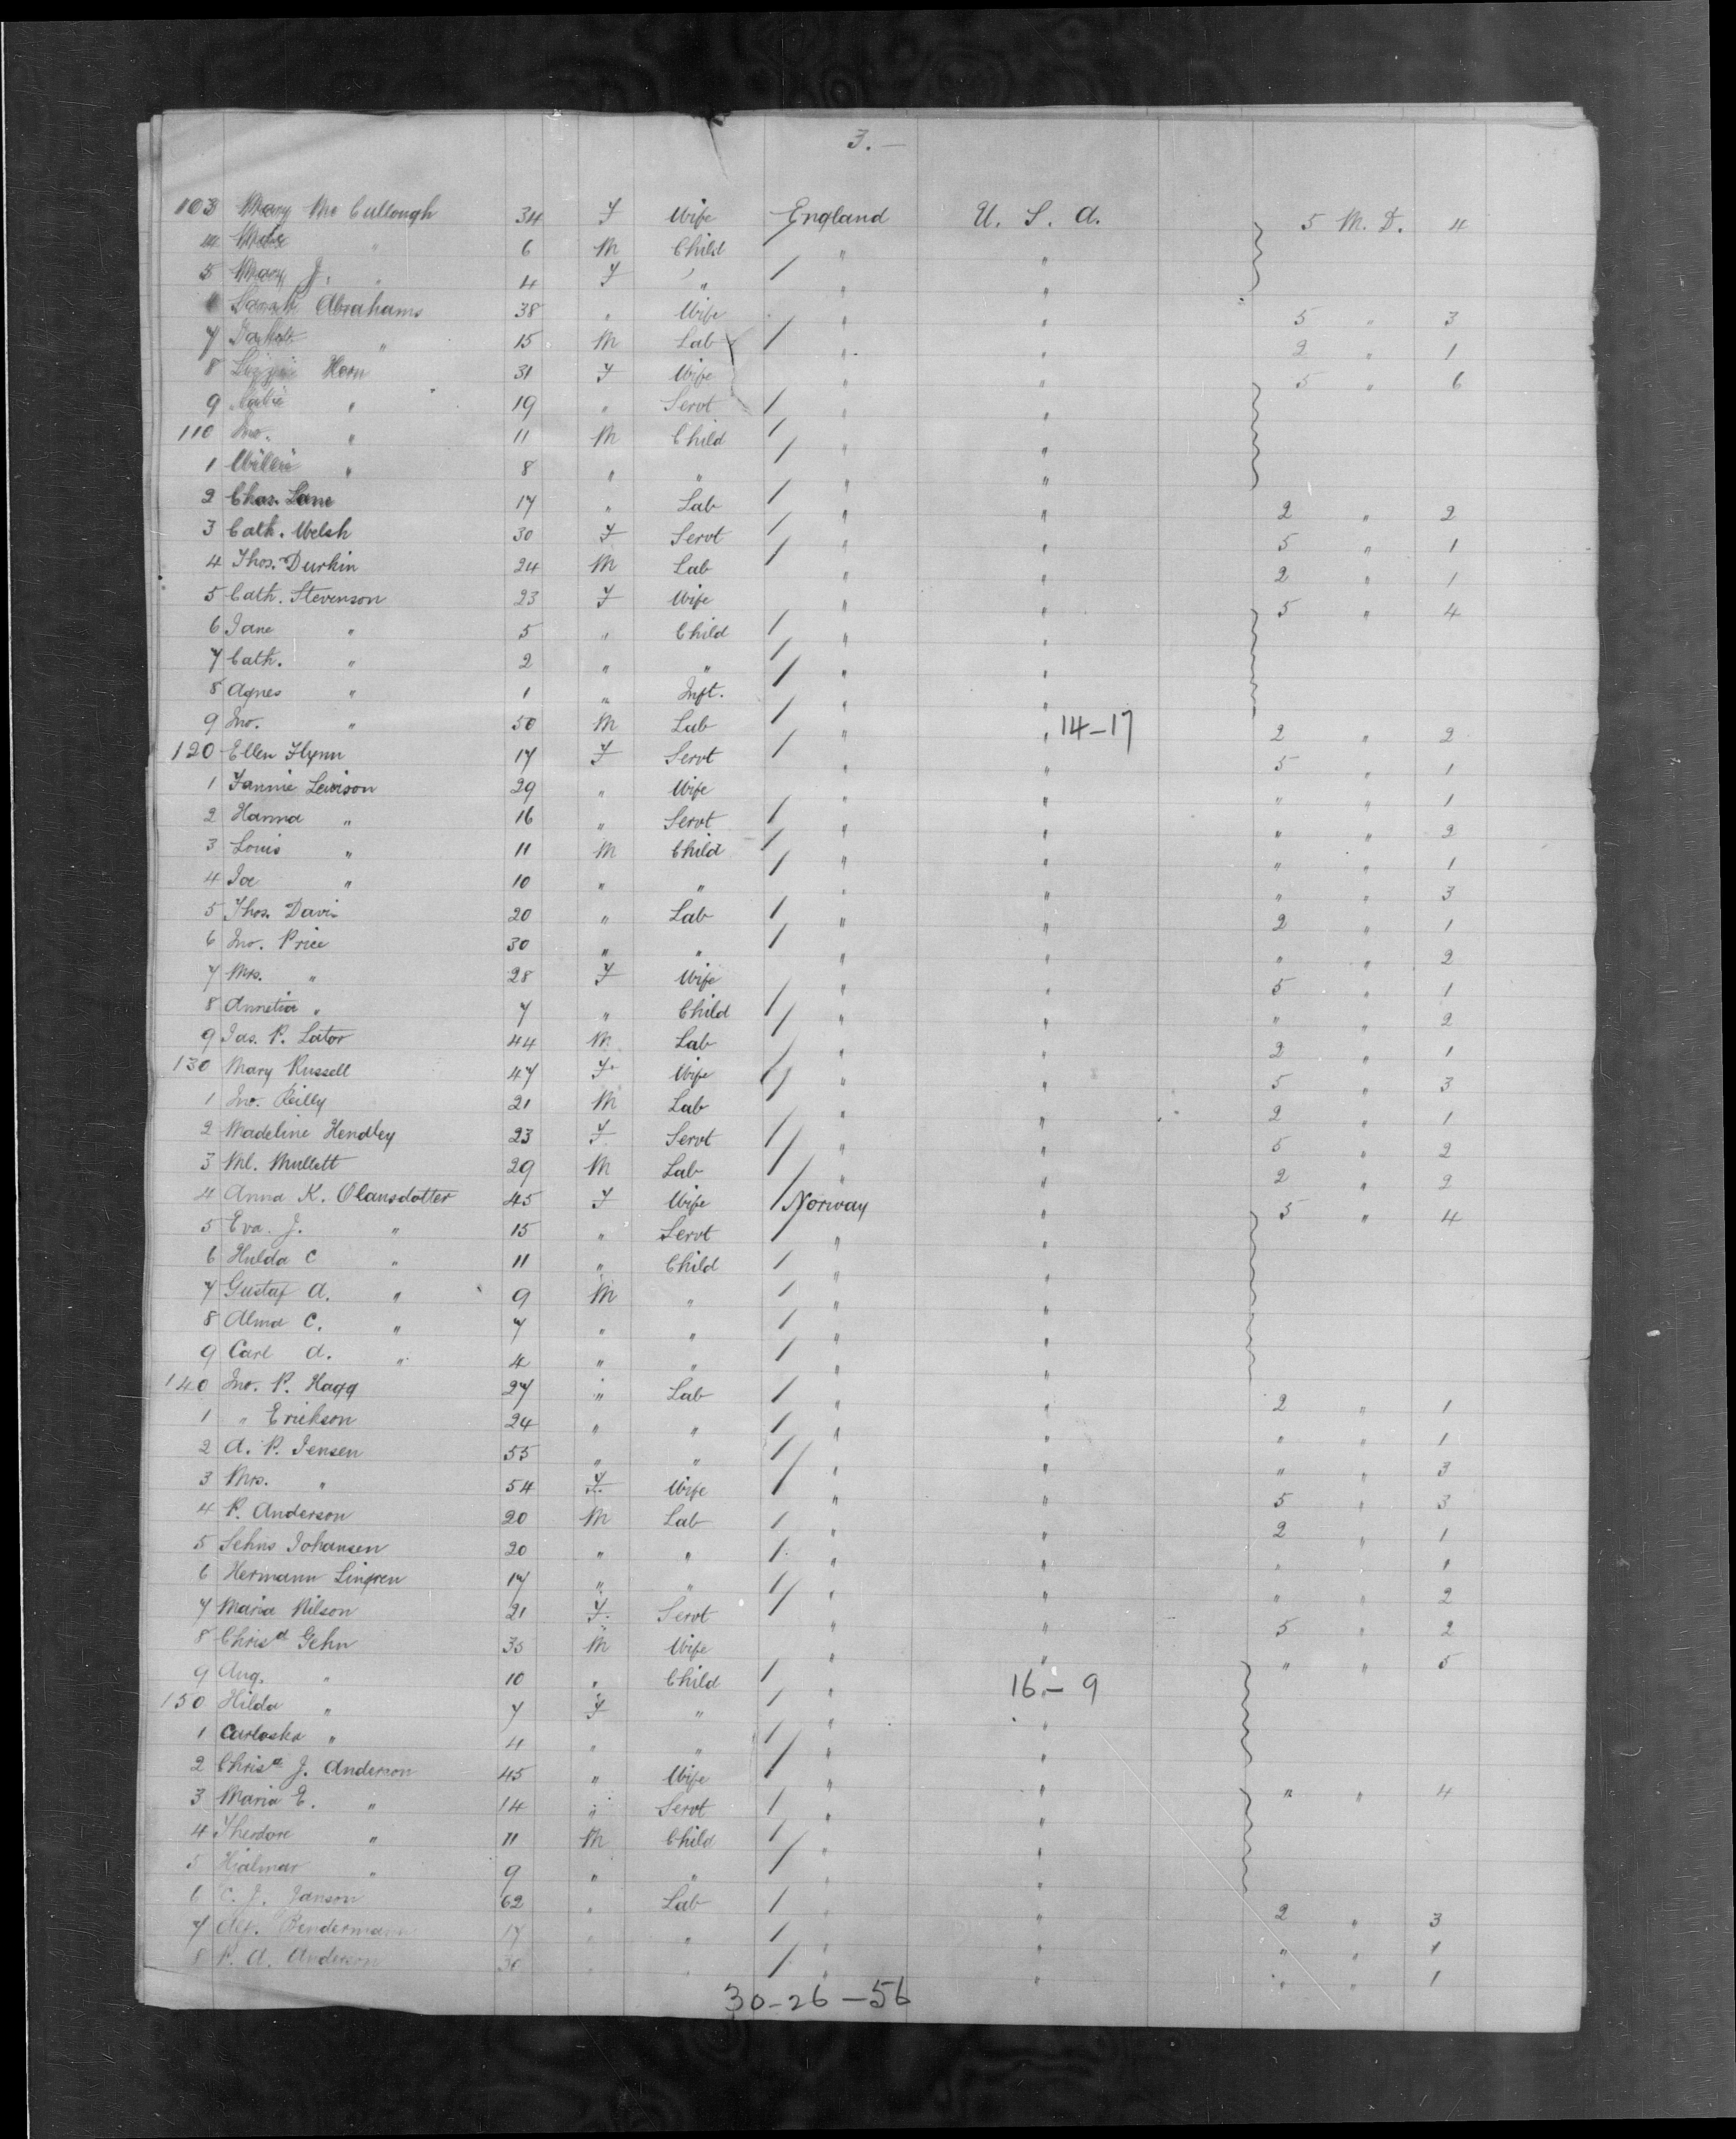 3.—
103 Mary Mc Cullough 34 F Wife England U. S. A. 5 M. D. 4
4 " 6 M Child " "
5 Mary J. " 4 F " " "
Sarah Abrahams 38 " Wife " " 5 " 3
7 " 15 M Lab " " 2 " 1
8 Lizzie Horn 31 F Wife " " 5 " 6
9 " 19 " Servt " "
110 Jno. " 11 M Child " "
1 Willie " 8 " " " "
2 Chas. Lane 17 " Lab " " 2 " 2
3 Cath. Welsh 30 F Servt " " 5 " 1
4 Thos. Durkin 24 M Lab " " 2 " 1
5 Cath. Stevenson 23 F Wife " " 5 " 4
6 Jane " 5 " Child " "
7 Cath. " 2 " " " "
8 Agnes " 1 " Inft. " "
9 Jno. " 50 M Lab " " 14–17 2 " 2
120 Ellen Flynn 17 F Servt " " 5 " 1
1 Fannie Levison 29 " Wife " " " " 1
2 Hanna " 16 " Servt " " " " 2
3 Louis " 11 M Child " " " " 1
4 Joe " 10 " " " " " " 3
5 Thos. Davis 20 " Lab " " 2 " 1
6 Jno. Price 30 " " " " " " 2
7 Mrs. " 28 F Wife " " 5 " 1
8 Annetia " 7 " Child " " " " 2
9 Jas. P. Lator 44 M Lab " " 2 " 1
130 Mary Russell 47 F Wife " " 5 " 3
1 Jno. Reilly 21 M Lab " " 2 " 1
2 Madeline Hendley 23 F Servt " " 5 " 2
3 Ml. Mullett 29 M Lab " " 2 " 2
4 Anna K. Olausdotter 45 F Wife Norway " 5 " 4
5 Eva J. " 15 " Servt " "
6 Hulda C " 11 " Child " "
7 Gustaf A. " 9 M " " "
8 Alma C. " 7 " " " "
9 Carl A. " 4 " " " "
140 Jno. P. Hagg 27 " Lab " " 2 " 1
1 " Erickson 24 " " " " " " 1
2 A. P. Jensen 55 " " " " " " 3
3 Mrs. " 54 F. Wife " " 5 " 3
4 P. Anderson 20 M Lab " " 2 " 1
5 Sehns Johansen 20 " " " " " 1
6 Hermann Lingren 17 " " " " " " 2
7 Maria Nilson 21 F. Servt " " 5 " 2
8 Chrisa Gehn 35 M Wife " " " " 5
9 Aug. " 10 " Child " " 16–9
150 Hilda " 7 F " " "
1 Carloska " 4 " " " "
2 Chrisa J. Anderson 45 " Wife " " " " 4
3 Maria E. " 14 " Servt " "
4 Therdore " 11 M Child " "
5 Hialmar " 9 " " " "
6 C. J. Janson 62 " Lab " " 2 " 3
7 Alf. Bendermann 17 " " " " " " 1
8 P. A. Anderson 30 " " " " " " 1
30–26–56